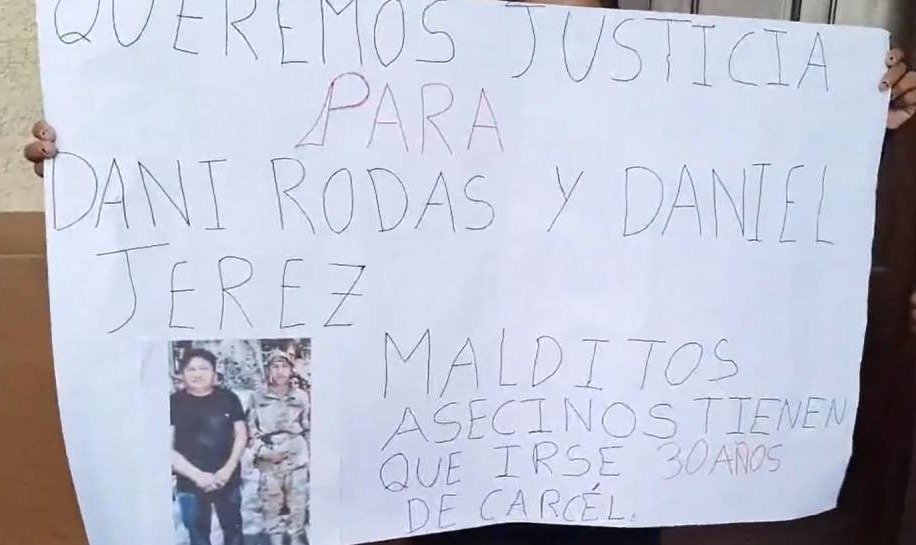 QUEREMOS JUSTICIA
PARA
DANI RODAS Y DANIEL
JEREZ
MALDITOS
ASECINOS TIENEN
QUE IRSE 30 AÑOS
DE CARCÉL.